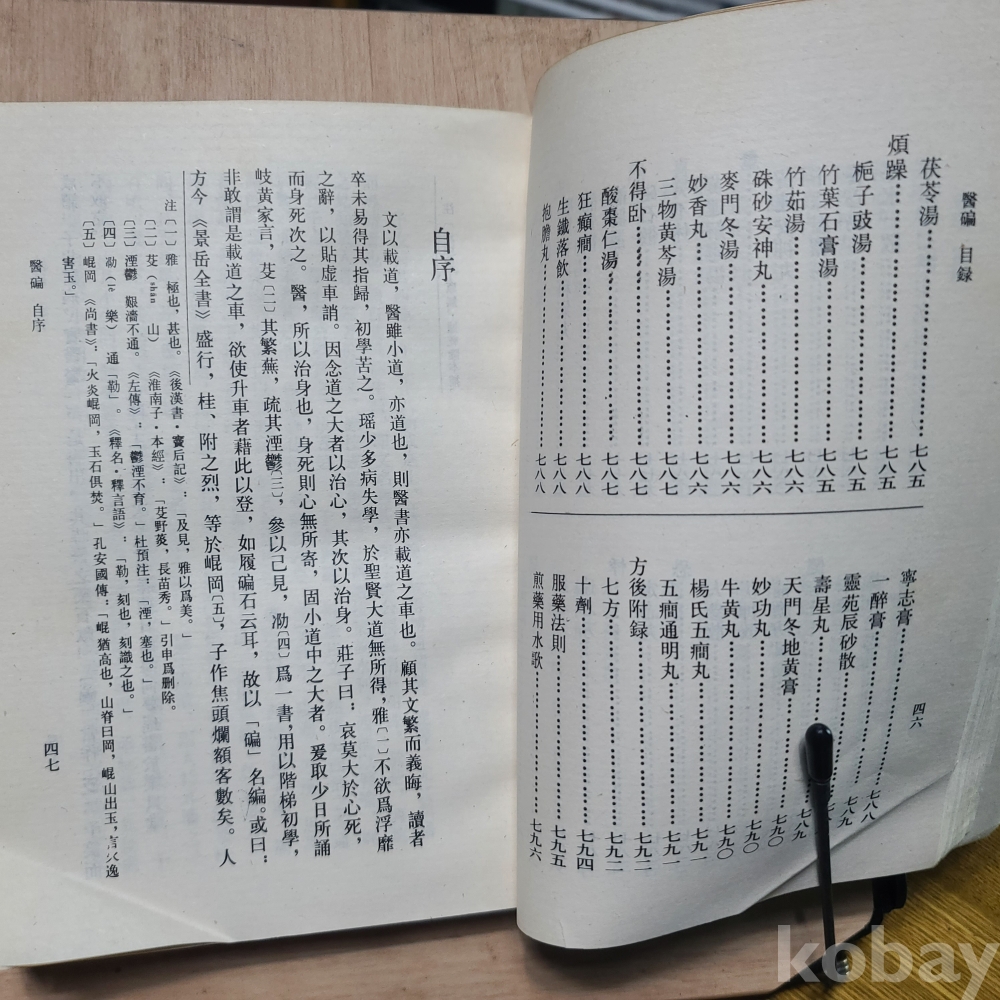 醫碥 目録
茯苓湯…………七八五
煩躁…………七八五
梔子豉湯…………七八五
竹葉石膏湯…………七八五
竹茹湯…………七八六
硃砂安神丸…………七八六
麥門冬湯…………七八六
妙香丸…………七八六
三物黃芩湯…………七八七
不得卧…………七八七
酸棗仁湯…………七八七
狂癲癇…………七八八
生鐵落飲…………七八八
抱膽丸…………七八八
四六
寧志膏…………七八八
一醉膏…………七八八
靈苑辰砂散…………七八九
壽星丸…………
天門冬地黃膏…………七八九
妙功丸…………七九〇
牛黃丸…………七九〇
楊氏五癇丸…………七九〇
五癇通明丸…………七九一
方後附録…………七九二
七方…………七九二
十劑…………七九四
服藥法則…………七九五
煎藥用水歌…………七九六
自序
文以載道，醫雖小道，亦道也，則醫書亦載道之車也。顧其文繁而義晦，讀者
卒未易得其指歸，初學苦之。瑶少多病失學，於聖賢大道無所得，雅〔一〕不欲爲浮靡
之辭，以貼虛車誚。因念道之大者以治心，其次以治身。莊子曰：哀莫大於心死，
而身死次之。醫，所以治身也，身死則心無所寄，固小道中之大者。爰取少日所誦
岐黃家言，芟〔二〕其繁蕪，疏其湮鬱〔三〕，參以己見，泐〔四〕爲一書，用以階梯初學，
非敢謂是載道之車，欲使升車者藉此以登，如履碥石云耳，故以「碥」名編。或曰：
方今《景岳全書》盛行，桂、附之烈，等於崐岡〔五〕，子作焦頭爛額客數矣。人
注〔一〕雅 極也，甚也。《後漢書·竇后記》：「及見，雅以爲美。」
〔二〕芟（shān 山） 《淮南子·本經》：「芟野莢，長苗秀。」引申爲删除。
〔三〕湮鬱 艱濇不通。《左傳》：「鬱湮不育。」杜預注：「湮，塞也。」
〔四〕泐（lè 樂） 通「勒」。《釋名·釋言語》：「勒，刻也，刻識之也。」
〔五〕崐岡 《尚書》：「火炎崐岡，玉石俱焚。」孔安國傳：「崐猶高也，山脊曰岡，崐山出玉，言火逸
害玉。」
醫碥 自序
四七
kobay